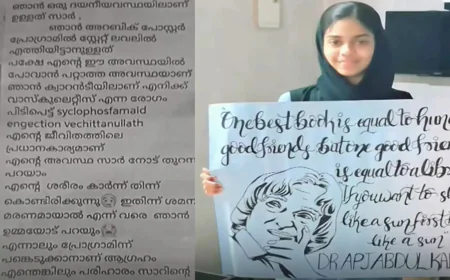 ഞാൻ ഒരു ദയനീയവസ്ഥയിലാണ്
ഉള്ളത് സാർ .
ഞാൻ അറബിക് പോസ്റ്റർ
പ്രോഗ്രാമിൽ സ്റ്റേറ്റ് ലവലിൽ
എത്തിയിട്ടാനുള്ളത്
പക്ഷേ എന്റെ ഈ അവസ്ഥയിൽ
പോവാൻ പറ്റാത്ത അവസ്ഥയാണ്
ഞാൻ ക്വാറന്റീയിലാണ് എനിക്ക്
വാസ്കുലെറ്റിസ് എന്ന രോഗം
പിടിപെട്ട് syclophosfamaid
engection vechittanullath
എന്റെ ജീവിതത്തിലെ
പ്രധാനകാര്യമാണ്
എന്റെ അവസ്ഥ സാർ നോട് തുറന്ന
പറയാം
എന്റെ ശരീരം കാർന്ന് തിന്ന്
കൊണ്ടിരിക്കുന്നു😥 ഇതിന്ന് ശമന
മരണമായാൽ എന്ന് വരെ ഞാൻ
ഉമ്മയോട് പറയും😭
എന്നാലും പ്രോഗ്രാമിന്ന്
പങ്കെടുക്കാനാണ് ആഗ്രഹം
എന്തെങ്കിലും പരിഹാരം സാറിന്റെ
"One best book is equal to
good friends but one good
is equal to a
If you want to
like a sun first
like a sun"
DR APJ ABDUL